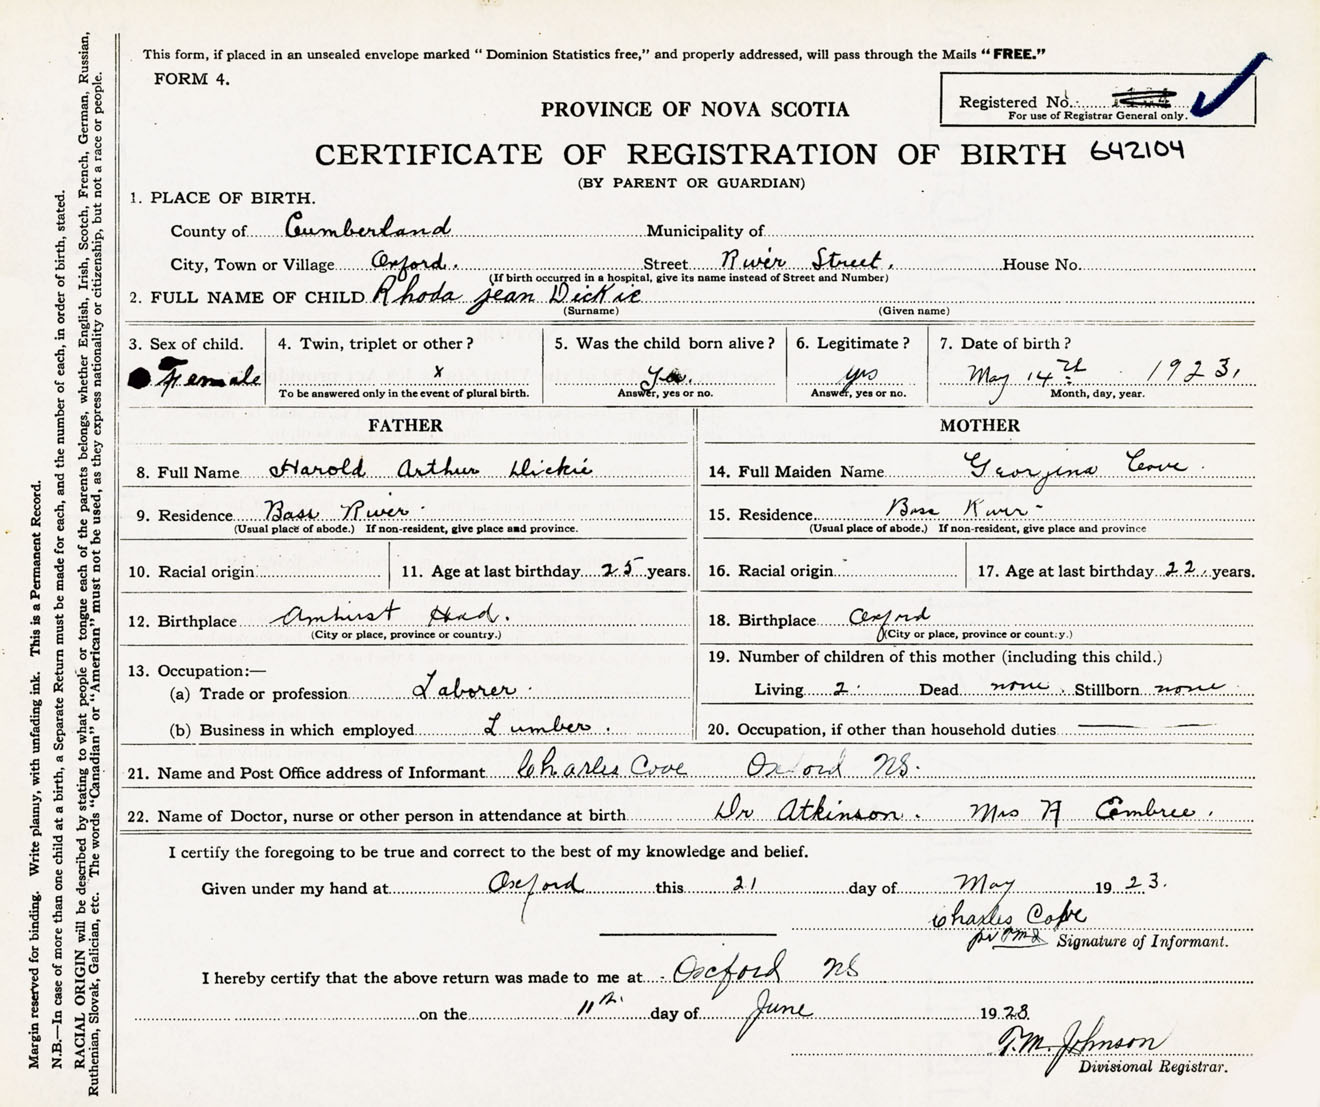 This form, if placed in an unsealed envelope marked " Dominion Statistics free," and properly addressed, will pass through the Mails "FREE."
FORM 4.
Registered No.
For use of Registrar General only.
PROVINCE OF NOVA SCOTIA
CERTIFICATE OF REGISTRATION OF BIRTH 642104
(BY PARENT OR GUARDIAN)
1. PLACE OF BIRTH.
County of Cumberland Municipality of
City, Town or Village Oxford. Street River Street. House No.
(If birth occurred in a hospital, give its name instead of Street and Number)
2. FULL NAME OF CHILD Rhoda Jean Dickie
(Surname) (Given name)
3. Sex of child. 4. Twin, triplet or other? 5. Was the child born alive? 6. Legitimate? 7. Date of birth?
Female x Yes. yes May 14th 1923.
To be answered only in the event of plural birth. Answer, yes or no. Answer, yes or no. Month, day, year.
FATHER MOTHER
8. Full Name Harold Arthur Dickie 14. Full Maiden Name Georgina Cove
9. Residence Bass River 15. Residence Bass River
(Usual place of abode.) If non-resident, give place and province. (Usual place of abode.) If non-resident, give place and province
10. Racial origin 11. Age at last birthday 25 years. 16. Racial origin 17. Age at last birthday 22 years.
12. Birthplace Amhirst Head. 18. Birthplace Oxford
(City or place, province or country.) (City or place, province or country.)
13. Occupation:— 19. Number of children of this mother (including this child.)
(a) Trade or profession Laborer Living 2 Dead none Stillborn none
(b) Business in which employed Lumber. 20. Occupation, if other than household duties
21. Name and Post Office address of Informant Charles Cove Oxford NS.
22. Name of Doctor, nurse or other person in attendance at birth Dr Atkinson. Mrs H Embree.
I certify the foregoing to be true and correct to the best of my knowledge and belief.
Given under my hand at Oxford this 21 day of May 1923.
Charles Cove
Signature of Informant.
I hereby certify that the above return was made to me at Oxford NS
on the 11th day of June 1923.
T.M. Johnson
Divisional Registrar.
Margin reserved for binding. Write plainly, with unfading ink. This is a Permanent Record.
N.B.—In case of more than one child at a birth, a Separate Return must be made for each, and the number of each, in order of birth, stated.
RACIAL ORIGIN will be described by stating to what people or tongue each of the parents belongs, whether English, Irish, Scotch, French, German, Russian,
Ruthenian, Slovak, Galician, etc. The words "Canadian" or "American" must not be used, as they express nationality or citizenship, but not a race or people.